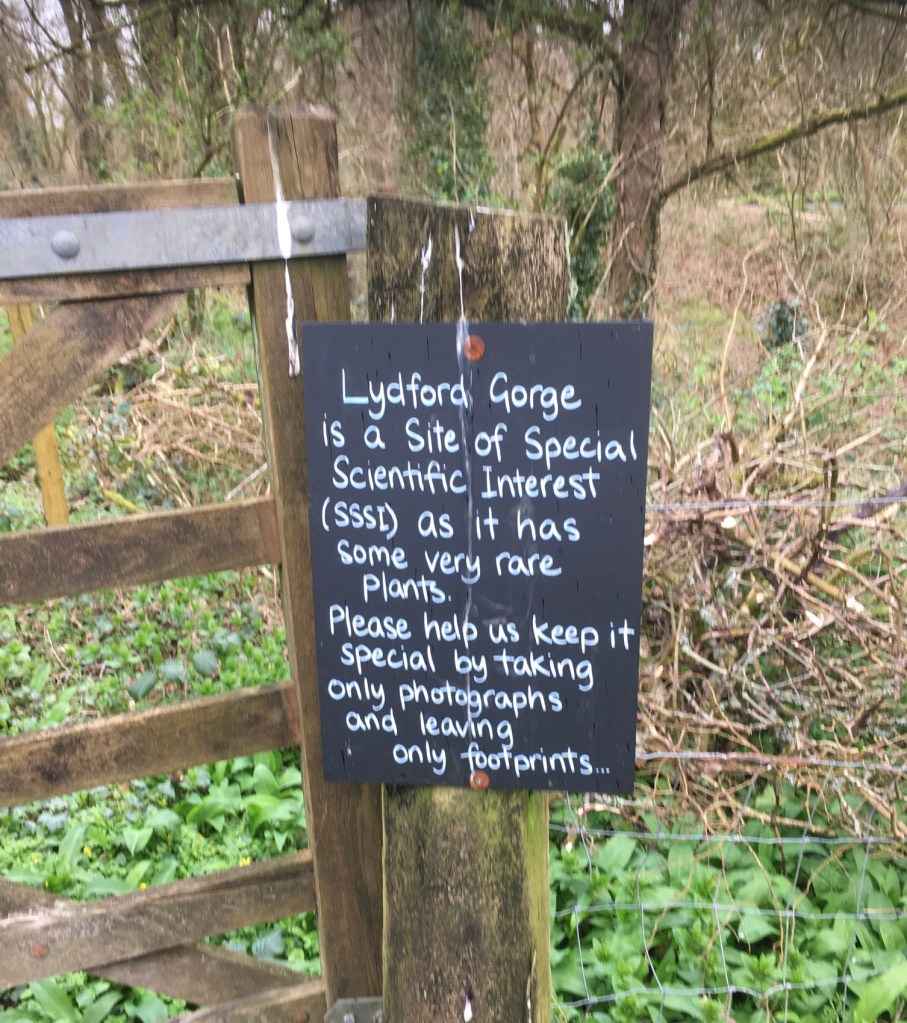 Lydford Gorge
is a Site of Special
Scientific Interest
(SSSI) as it has
some very rare
plants.
Please help us keep it
special by taking
only photographs
and leaving
only footprints...